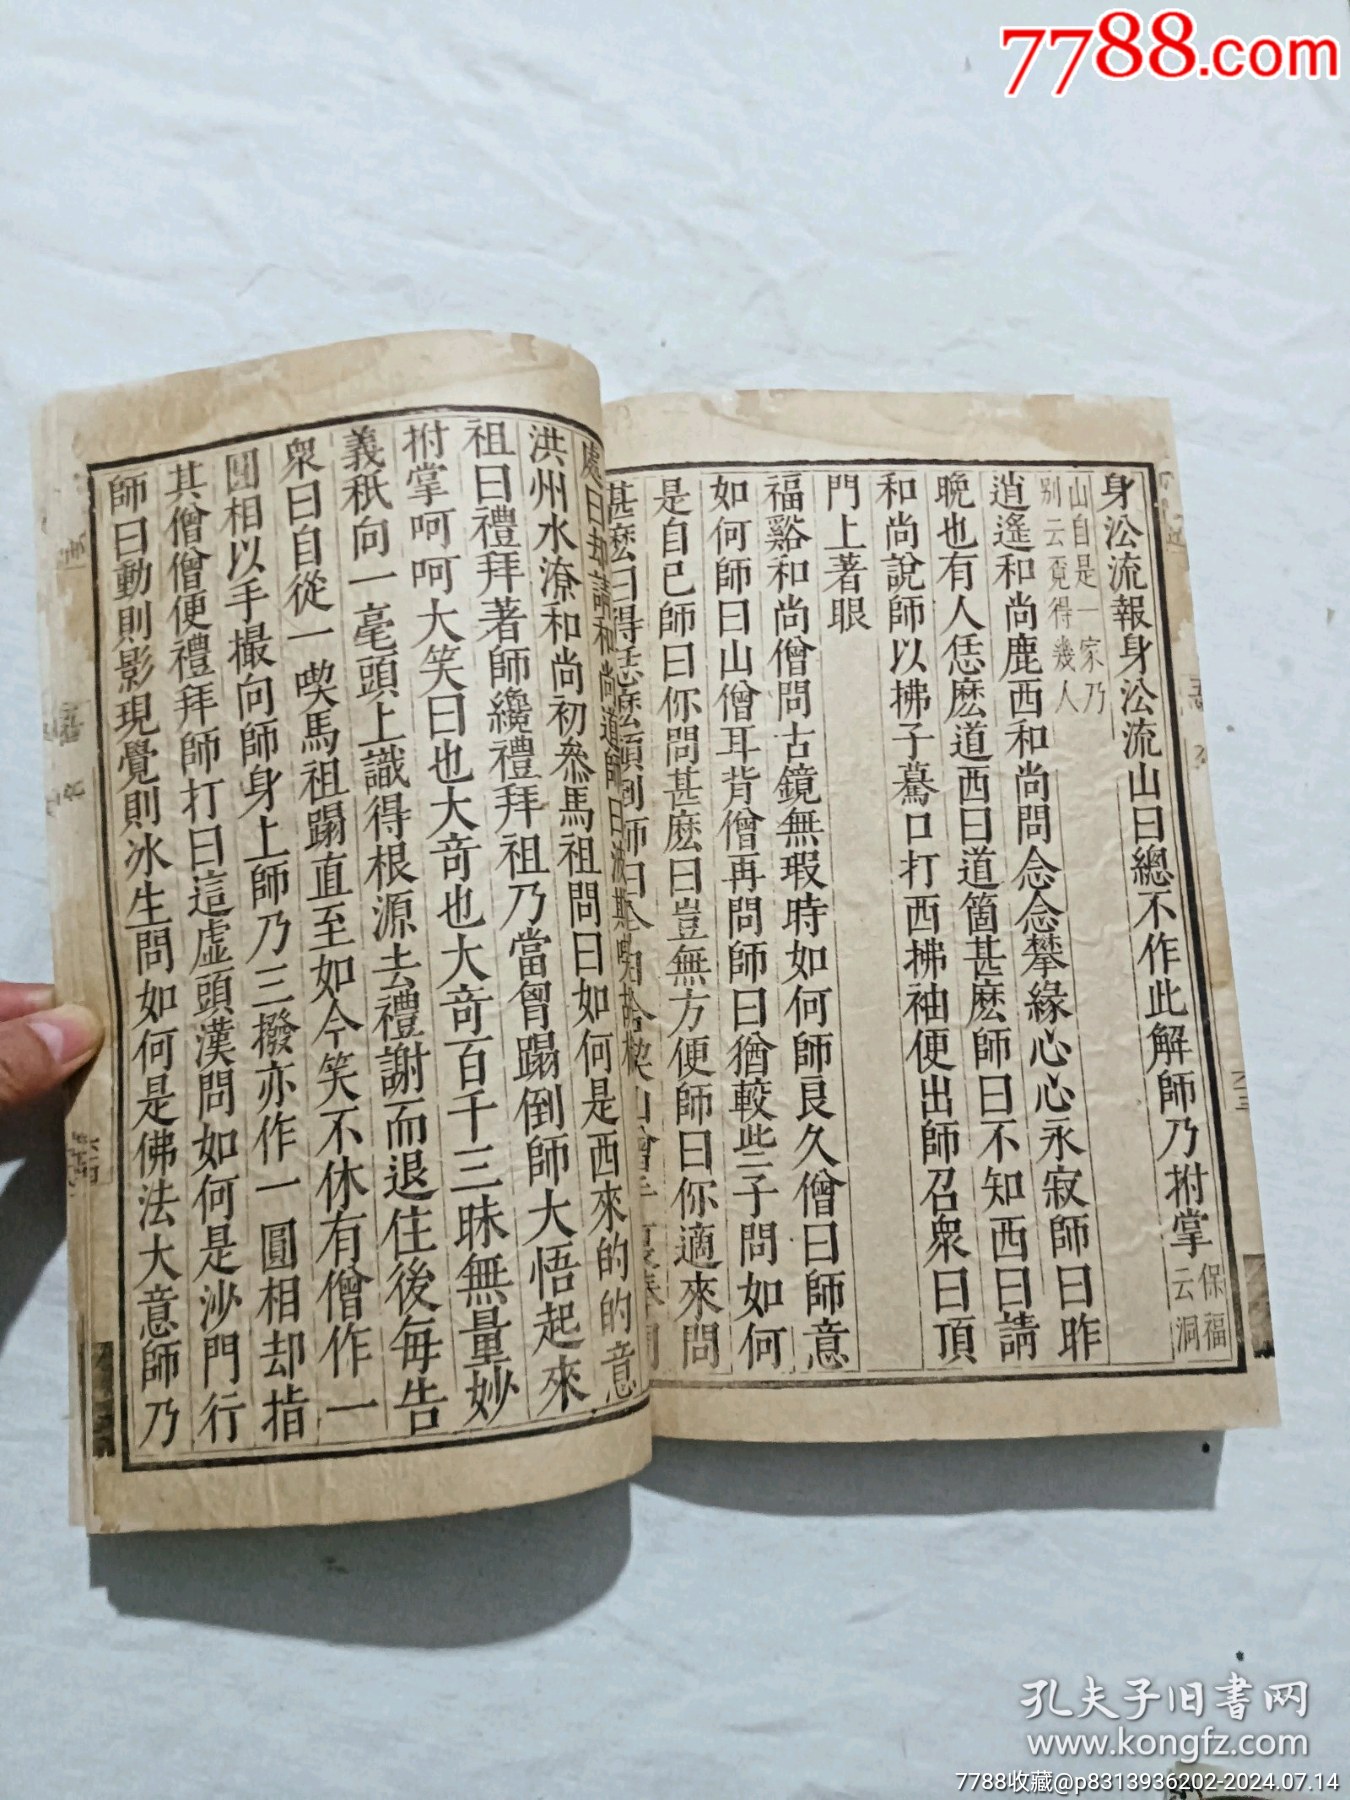 7788.com
身公流報身公流山曰總不作此解師乃拊掌保福云洞
山自是一家乃
别云覔得幾人
逍遙和尚鹿西和尚問念念攀緣心心永寂師曰昨
晚也有人恁麽道西曰道箇甚麽師曰不知西曰請
和尚說師以拂子驀口打西拂袖便出師召衆曰頂
門上著眼
福谿和尚僧問古鏡無瑕時如何師良久僧曰師意
如何師曰山僧耳背僧再問師曰猶較些子問如何
是自己師曰你問甚麽曰豈無方便師曰你適來問
甚麽曰得恁麽顛倒師曰
處曰却請和尚道師曰波斯喫
洪州水潦和尚初叅馬祖問曰如何是西來的的意
祖曰禮拜著師纔禮拜祖乃當胷蹋倒師大悟起來
拊掌呵呵大笑曰也大奇也大奇百千三昧無量妙
義秖向一毫頭上識得根源去禮謝而退住後每告
衆曰自從一喫馬祖蹋直至如今笑不休有僧作一
圓相以手撮向師身上師乃三撥亦作一圓相却指
其僧僧便禮拜師打曰這虛頭漢問如何是沙門行
師曰動則影現覺則冰生問如何是佛法大意師乃
孔夫子旧書网
www.kongfz.com
7788收藏@p8313936202-2024.07.14